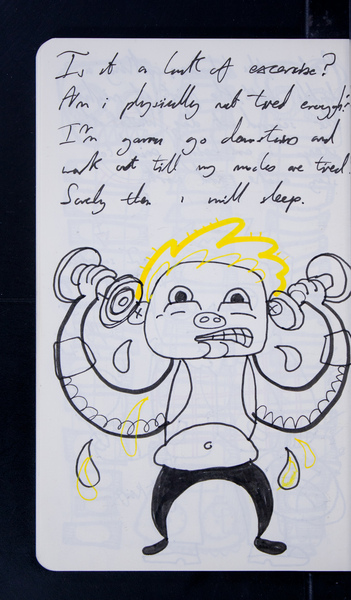 Is it a lack of excercise?
Am i physically not tired enough?
I'm gonna go downstairs and
work out till my muscles are tired.
Surely then i will sleep.